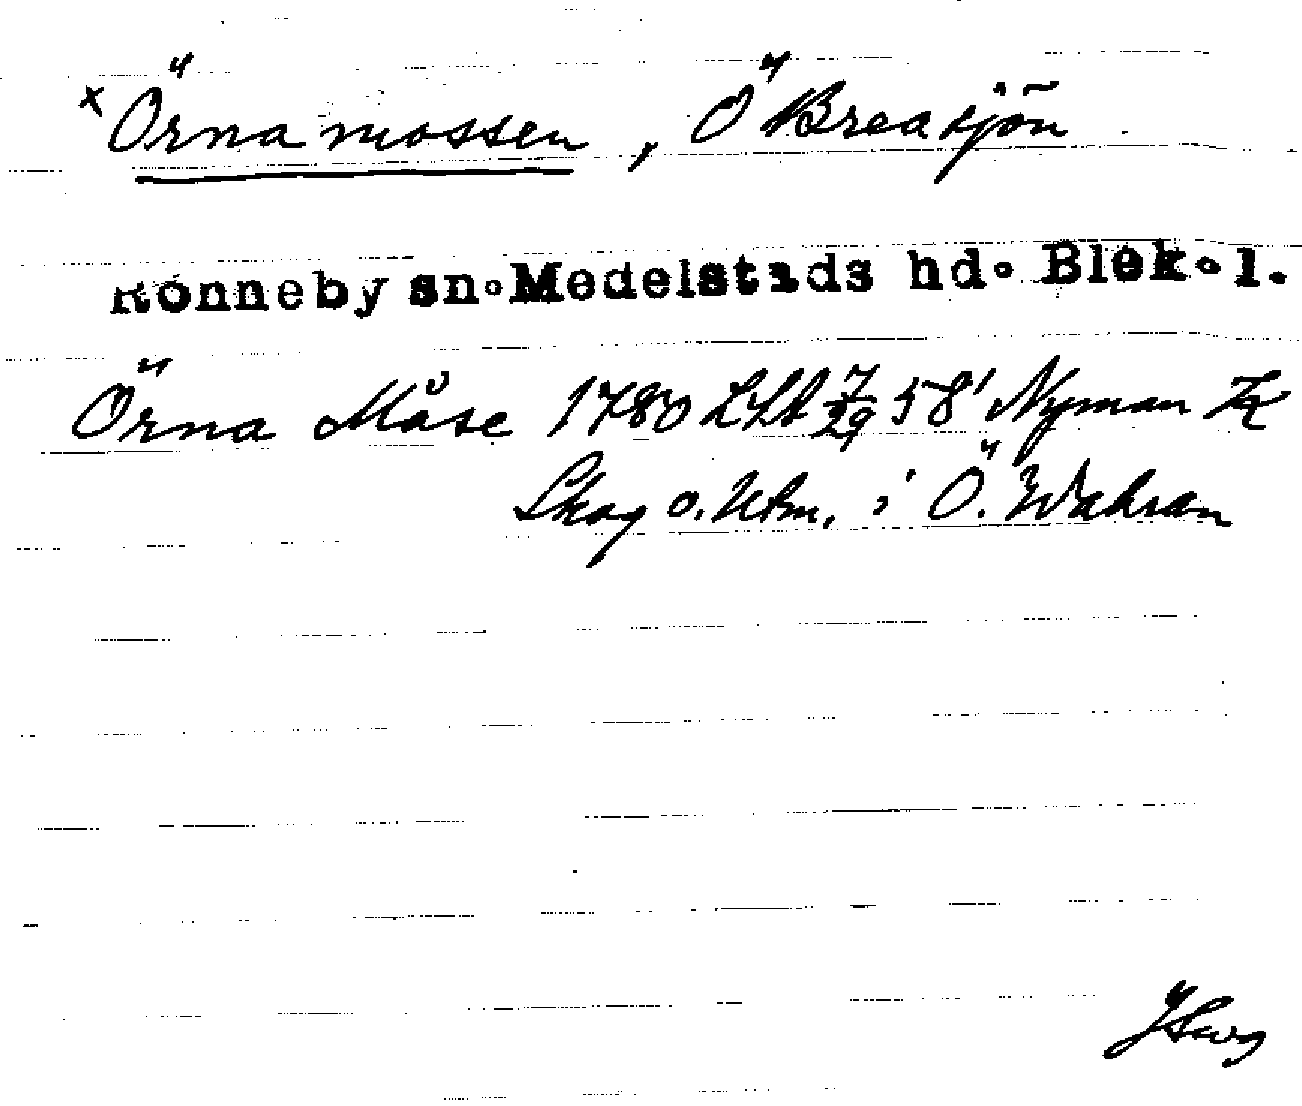 x Örnamossen, Ö Breasjön
Rönneby sn. Medelstads hd. Blek. l.
Örna Måse 1780 LSA 7/29 58' Nyman K
Skog o. Utm. i Ö. Wahran